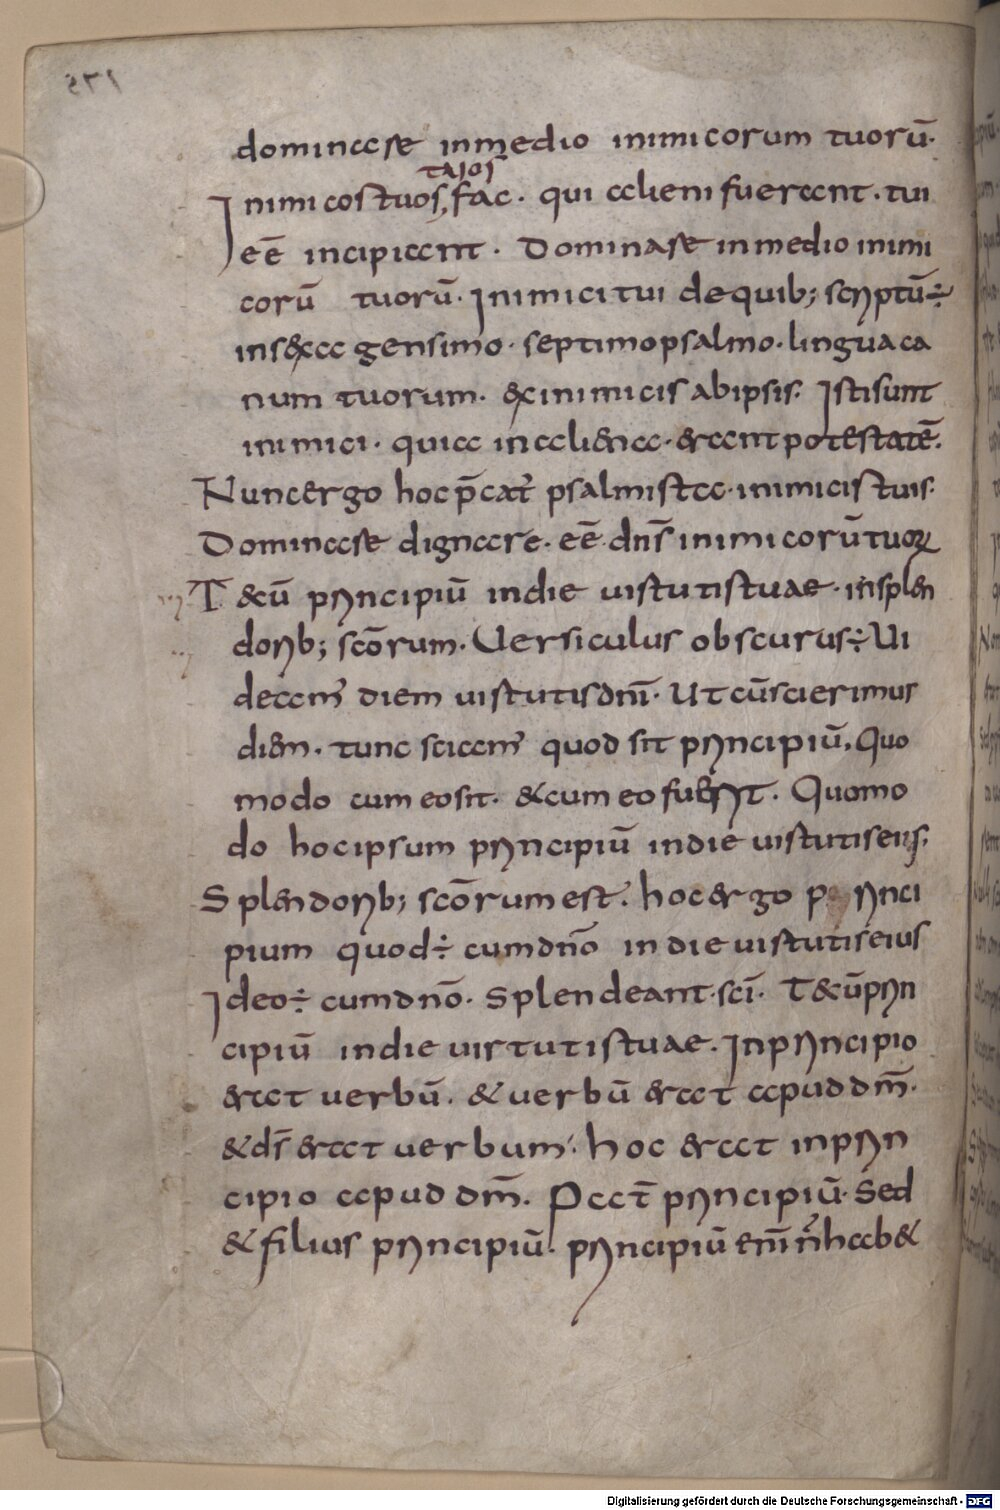 175
dominase inmedio inimicorum tuorū·
tales
Inimicostuos, fac· qui alieni fuerant· tui
eē incipiant· Dominase inmedio inimi
corū tuorū· Inimici tui dequib; scriptū÷
insexagensimo· septimopsalmo· lingua ca
num tuorum· exinimicis abipsis· Istisunt
inimici· quia inaliena· erant potestatē·
Nuncergo hoc p̄cat̄ psalmista· inimicis tuis·
Dominase dignare· eē dn̄s inimicorū tuoꝝ
T&cū principiū indie uistutistuae· insplen
dorib; scōrum· Uersiculus obscurus÷ Ui
deam̄ diem uistutisdn̄i· Ut cū scierimus
diem· tunc sciam̄ quod sit principiū· Quo
modo cum eosit· &cum eo fuerit· Quomo
do hocipsum principiū indie uistutiseius·
Splendorib; scōrum est· hoc ergo princi
pium quod÷ cumdn̄o indie uistutiseius
Ideo÷ cumdn̄o· Splendeant sc̄i· T&cūprin
cipiū indie uirtutistuae· Inprincipio
erat uerbū· & uerbū erat apud dm̄·
&ds̄ erat uerbum· hoc erat inprin
cipio apud dm̄· Pat̄ principiū· Sed
&filius principiū· principiū eni̅ n̄ hab&
Digitalisierung gefördert durch die Deutsche Forschungsgemeinschaft - DFG